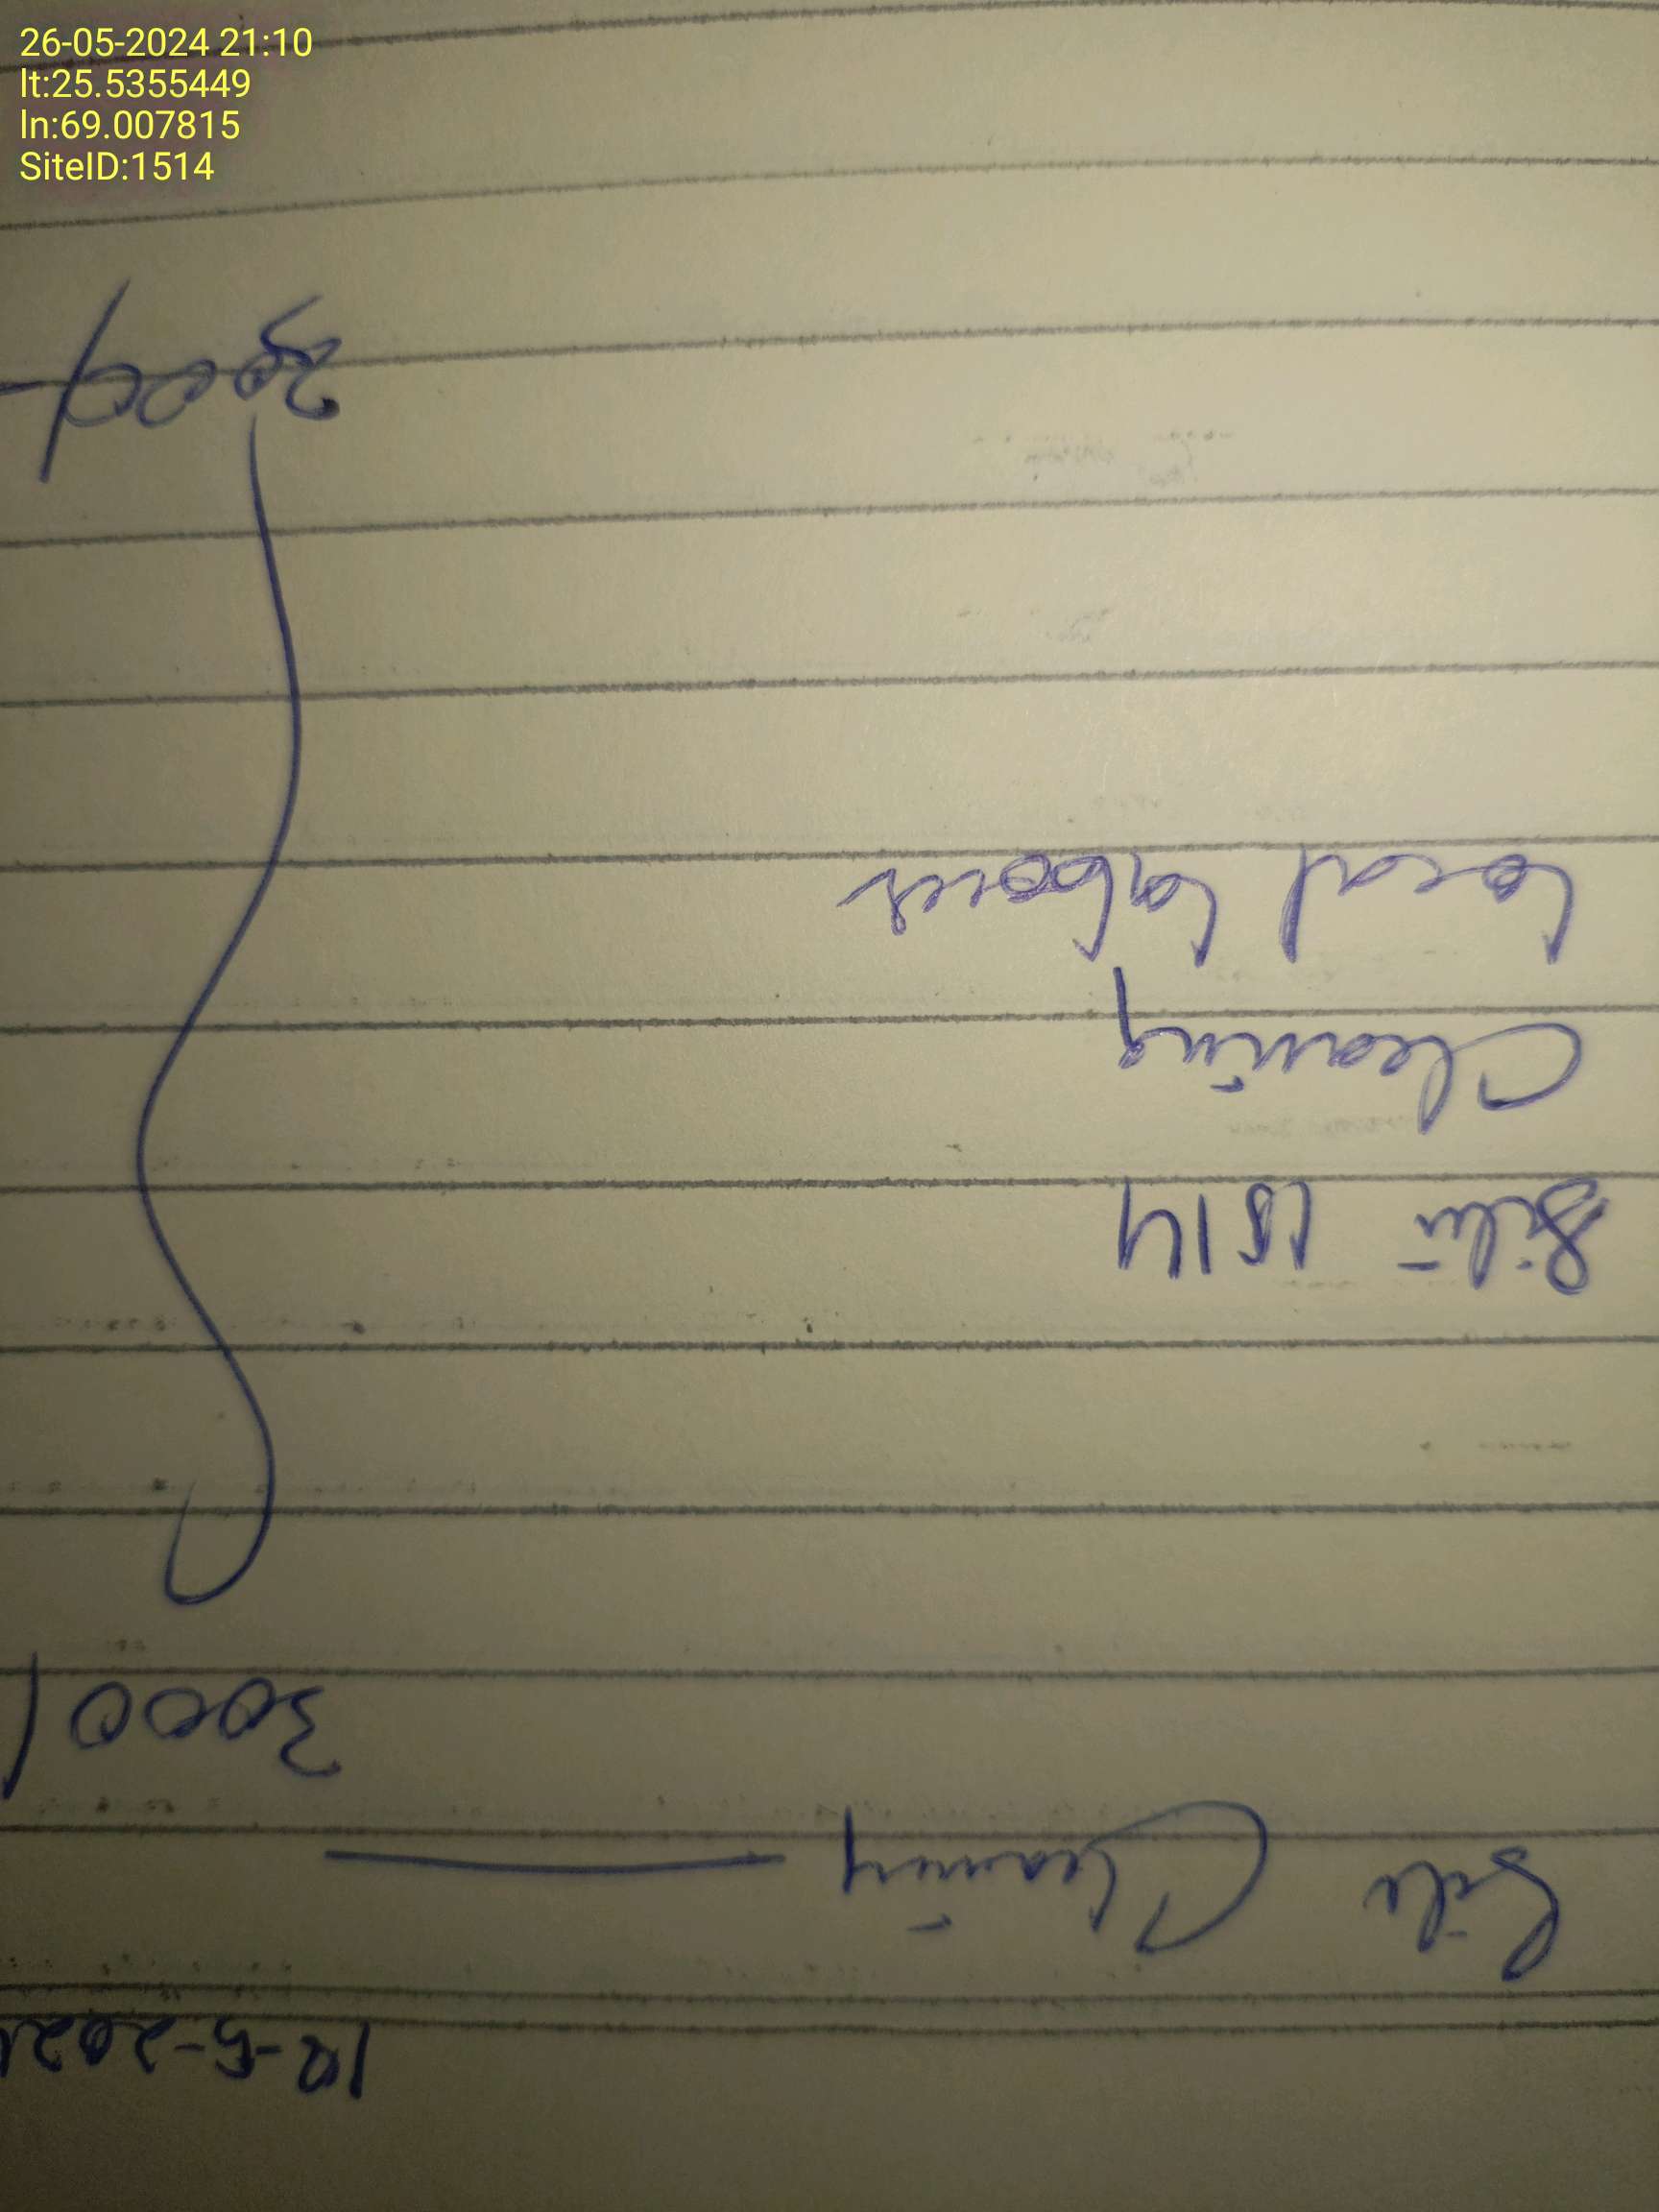 26-05-2024 21:10
lt:25.5355449
ln:69.007815
SiteID:1514
Site Cleaning — 3000/
Site 1514
Cleaning
Local Labour
3000/-